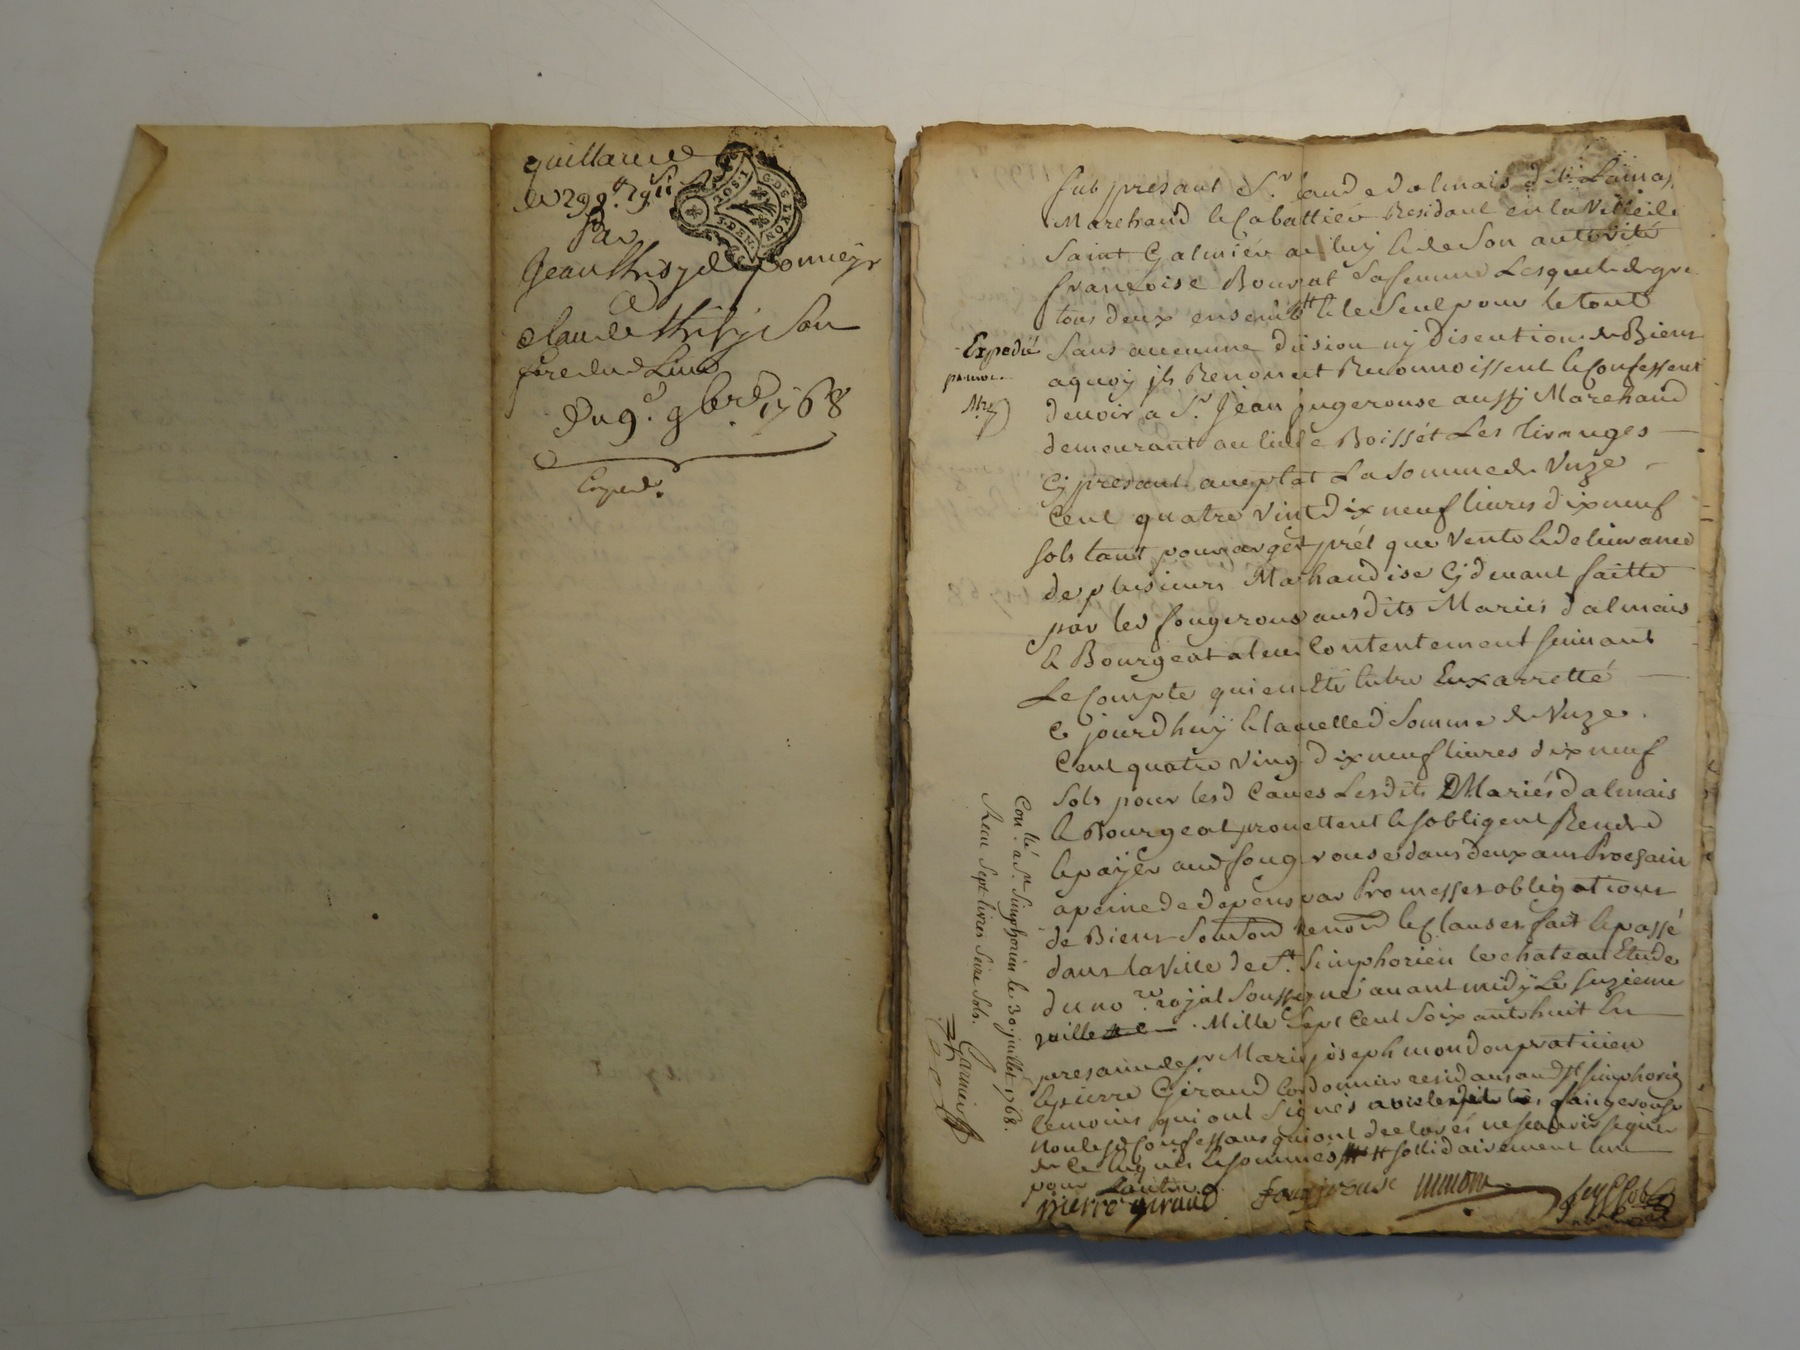 quittance
de 299# 19s
Par
Jean thisy de pomeys
a
claude thisy son
frere dud Lieu
du 9e. 9bre 1768
Exped.
G. DE LYON
fut presant Sr Claude dalmais dit Lainas
Marchand & Cabattier Residant en la Ville de
Saint Galmier & de luy & de son autorité
françoise Bourgat sa femme Lesquels de gré
tous deux ensemble & le seul pour le tout
Sans aucune diision ny disention de Biens
aquoy ils Renoncent Reconnoissent & Confessent
devoir a Sr Jean fugerouse aussj Marchand
demeurant au lieu de Boissét Les tiranges
Cy presant acceptat La somme de Unze
Cent quatre Vint dix neuf livres dix neuf
sols tant pour argét prét que Vente & delivrance
de plusieurs Marchandise Cj devant faitte
par led fougerouse ausdits Mariés dalmais
& Bourgeat a leur Contentement suivant
Le Compte qui en été Entre Eux arretté
Ce jourd huy & laquelle d Somme de Unze
Cent quatre Ving dix neuf livres dix neuf
Sols pour lesd Causes Lesdits Mariés dalmais
& Bourgeat promettent & sobligent Rendre
& payer aud fougerouse dans deux ans Prochain
a peine de depens par Promesses obligations
de Biens Soumon Renon & Clauses fait & passé
dans la Ville de St. Simphorien le chateau Etude
du nore royal Soussigné avant midy Le
juillet Mille Sept Cent Soixante huit En
presance de sr Marie joseph mondon praticien
& pierre Giraud Cordonnier residans aud St simphorien
temoins qui ont Signés avec led fougerouse
non lesd Confessans qui ont declarés ne scavoir signer
de Ce Enquis & sommés # solidairement lun
pour Lautre
pierre giraud fougerouse
Expedié
par moi
Conllé a St. Simphorien le 30 juillet 1768.
Reçu Sept livres Seize Sols. Garnier